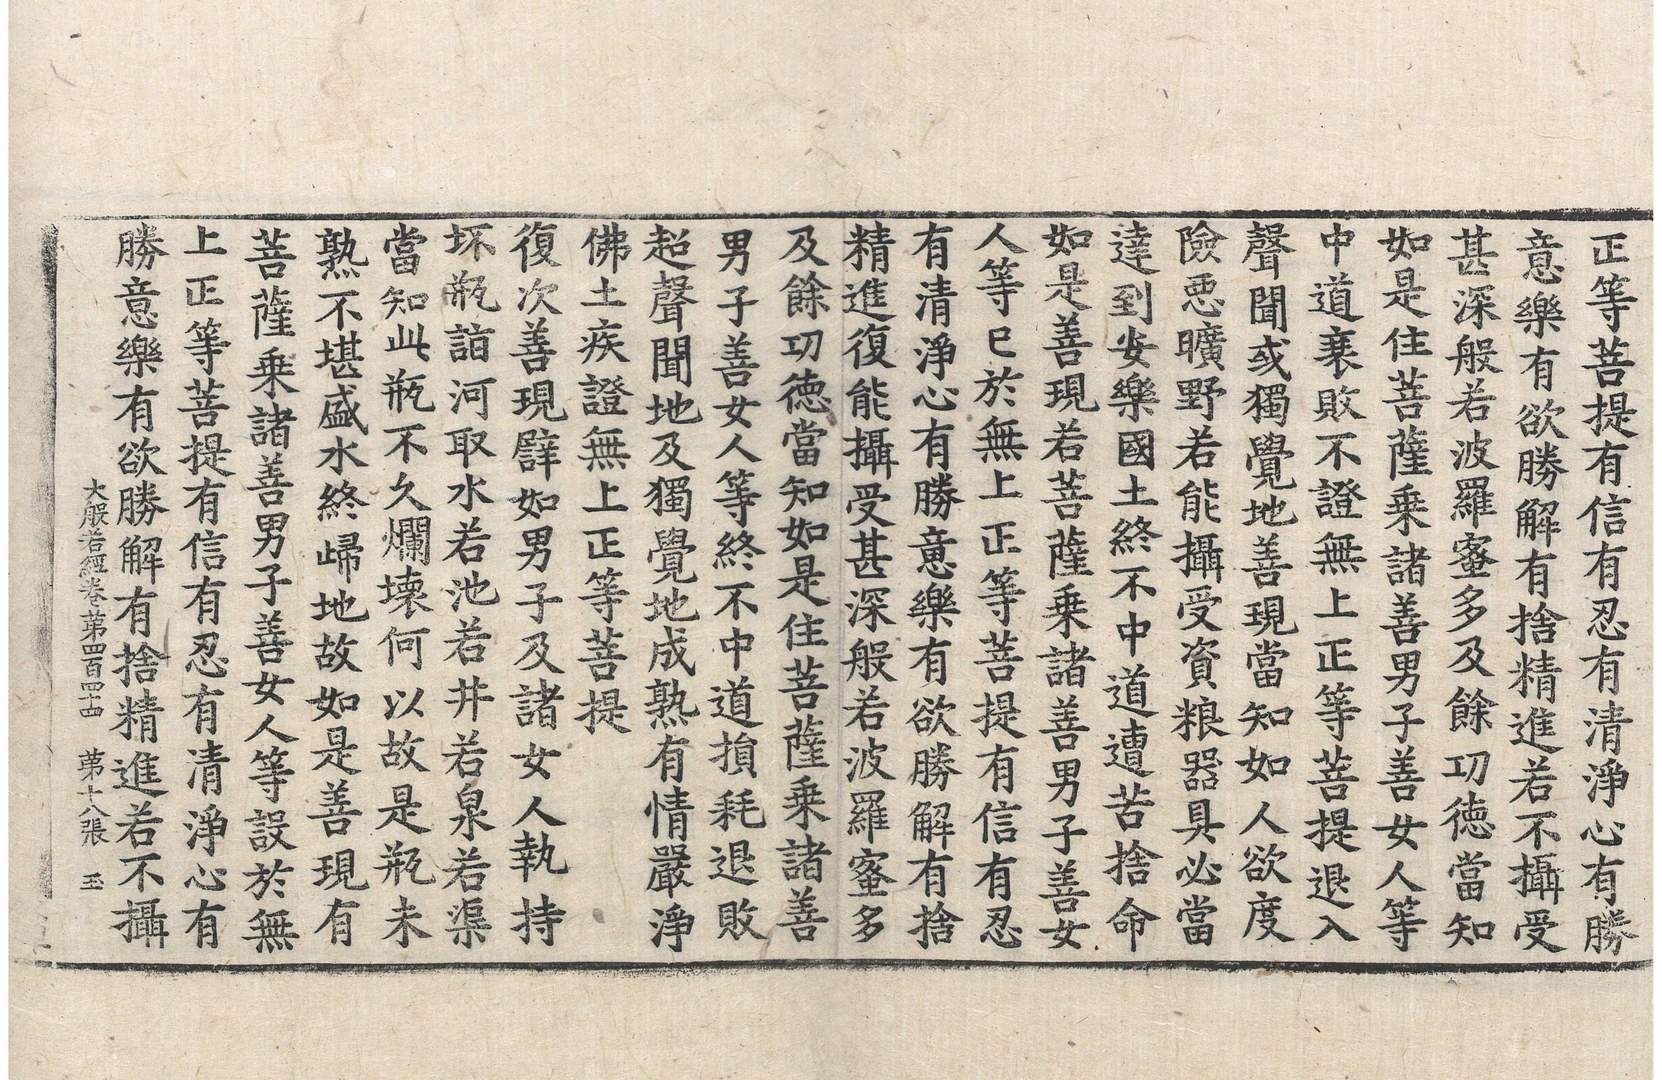 正等菩提有信有忍有清淨心有勝
意樂有欲勝解有捨精進若不攝受
甚深般若波羅蜜多及餘功徳當知
如是住菩薩乗諸善男子善女人等
中道衰敗不證無上正等菩提退入
聲聞或獨覺地善現當知如人欲度
險惡曠野若能攝受資粮器具必當
達到安樂國土終不中道遭苦捨命
如是善現若菩薩乗諸善男子善女
人等已於無上正等菩提有信有忍
有清淨心有勝意樂有欲勝解有捨
精進復能攝受甚深般若波羅蜜多
及餘功徳當知如是住菩薩乗諸善
男子善女人等終不中道損耗退敗
超聲聞地及獨覺地成熟有情嚴淨
佛土疾證無上正等菩提
復次善現譬如男子及諸女人執持
坏瓶詣河取水若池若井若泉若渠
當知此瓶不久爛壊何以故是瓶未
熟不堪盛水終歸地故如是善現有
菩薩乗諸善男子善女人等設於無
上正等菩提有信有忍有清淨心有
勝意樂有欲勝解有捨精進若不攝
大般若經卷第四百四十四　第十八張　玉